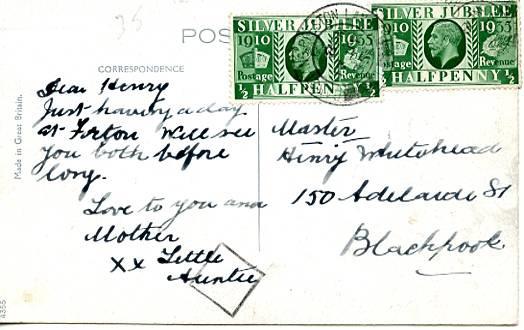 35
POS
CORRESPONDENCE
Made in Great Britain.
4355
SILVER JUBILEE
1910 1935
Postage Revenue
½ HALFPENNY ½
SILVER JUBILEE
1910 1935
Postage Revenue
½ HALFPENNY ½
Dear Henry
Just having a day
at Forton Will see
you both before
long.
Love to you and
Mother
xx Little
Auntie
Master
Henry Whitehead
150 Adelaide St
Blackpool